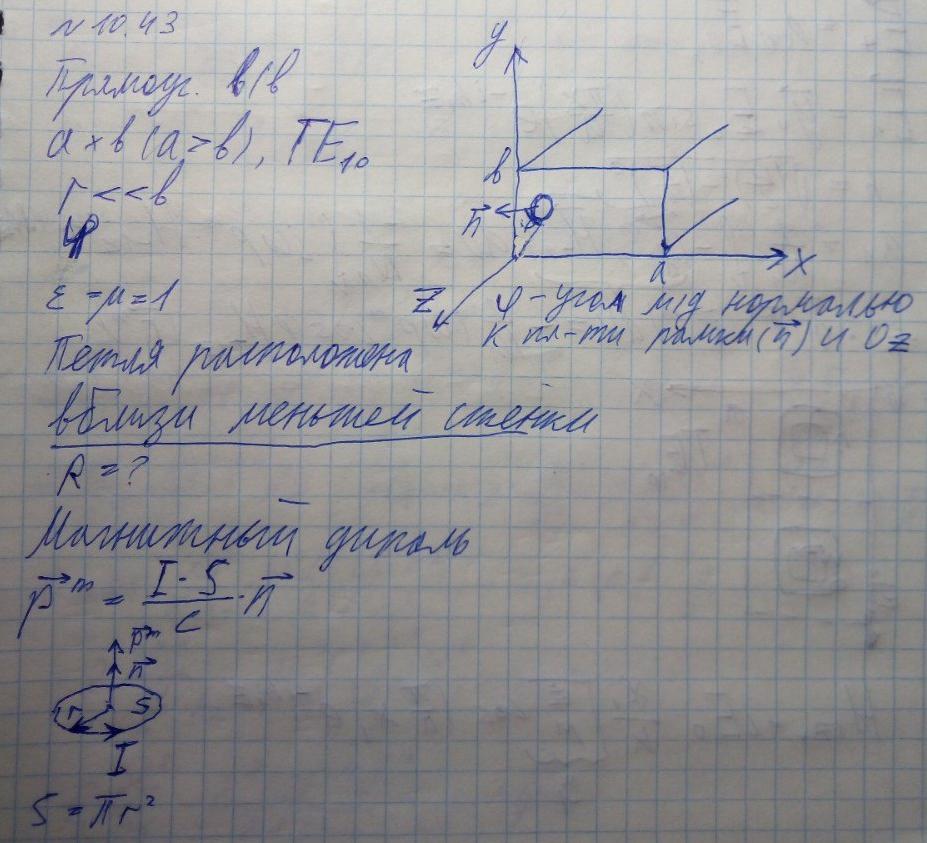 № 10.43
Прямоуг. в/в
a × b (a > b), TE₁₀
r << b
φ
ε = μ = 1
Петля расположена
вблизи меньшей стенки
R = ?
y
b
n⃗
a
x
z
φ - угол м/д нормалью
к пл-ти рамки (n⃗) и Oz
Магнитный диполь
p⃗ᵐ = I · S / c · n⃗
p⃗ᵐ
n⃗
r
S
I
S = πr²